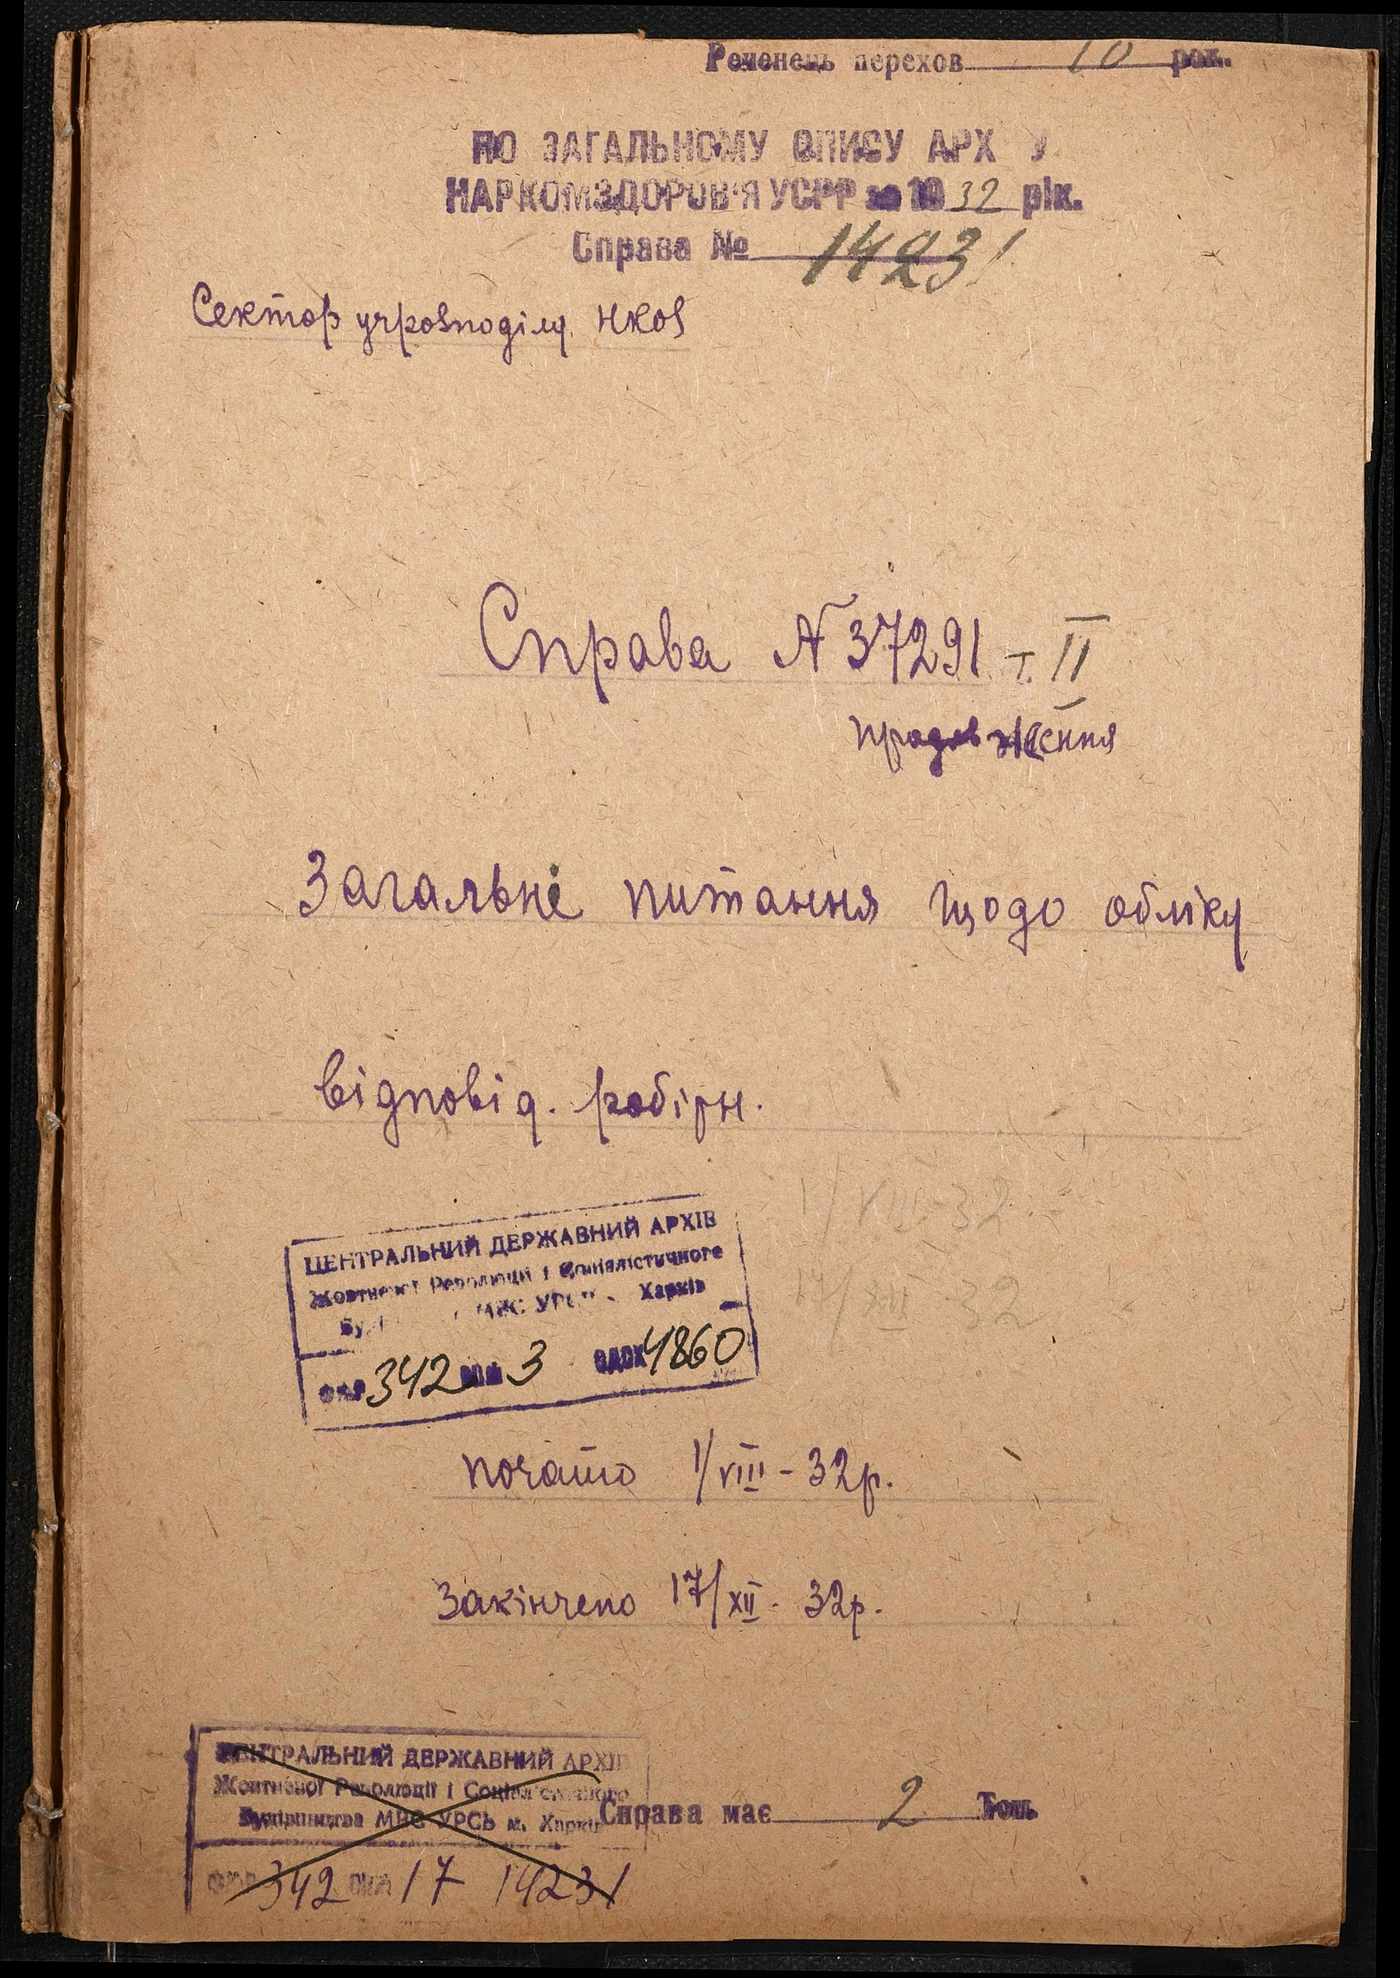 Реченець перехов 10 рок.
ПО ЗАГАЛЬНОМУ ОПИСУ АРХ У
НАРКОМЗДОРОВ'Я УСРР за 1932 рік.
Справа № 14231
Сектор учрозподілу НКОЗ
Справа № 37291 т. II
продовження
Загальні питання щодо обліку
відповід. робітн.
1/VIII-32
17/XII-32
ЦЕНТРАЛЬНИЙ ДЕРЖАВНИЙ АРХІВ
Жовтневої Революції і Соціалістичного
МВС УРСР Харків
342 3 4860
почато 1/VIII-32р.
Закінчено 17/XII-32р.
ЦЕНТРАЛЬНИЙ ДЕРЖАВНИЙ АРХІВ
Жовтневої Революції і Соціалістичного
Будівництва МВС УРСР м. Харків
Справа має 2 Том.
342 17 14231